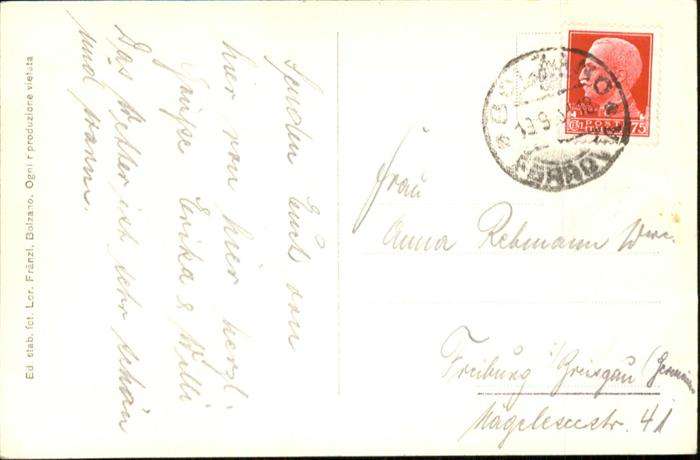 Ed. stab. fot. Lor. Fränzl, Bolzano. Ogni riproduzione vietata
Senden Euch von
hier von hier herzl.
Grüsse Erika & Willi
Das Wetter ist sehr schön
und warm.
POSTE
75
BOLZANO
FERROVIA
Frau
Anna Rebmann Wwe.
Freiburg i/Breisgau (Germania
Nägeleseestr. 41